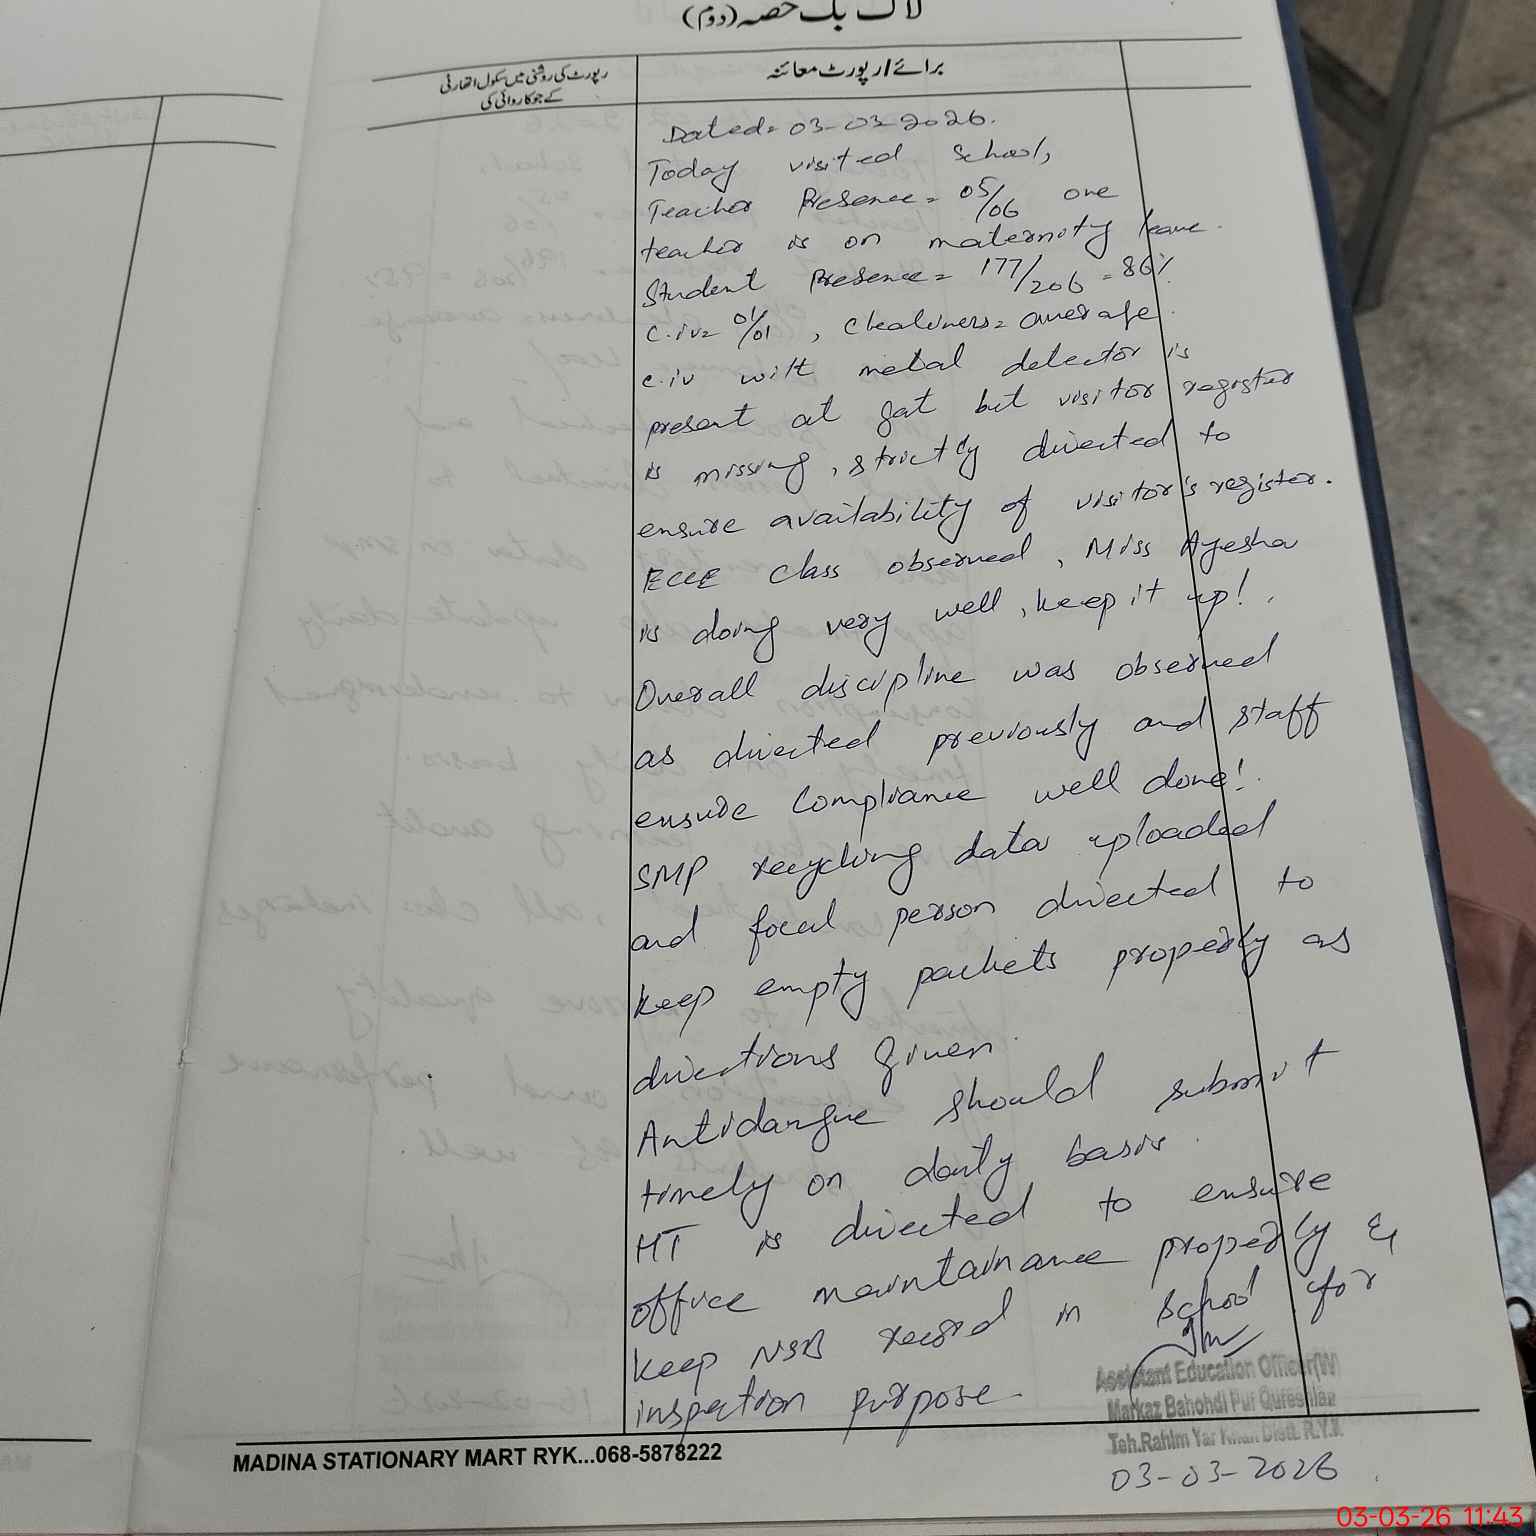 لاگ بک حصہ (دوم)
رپورٹ کی روشنی میں سکول اتھارٹی
کے جو کاروائی کی
برائے/رپورٹ معائنہ
Dated= 03-03-2026.
Today visited School,
Teacher Presence= 05/06 one
teacher is on maternity leave.
Student Presence= 177/206 =86%
C.iv= 01/01 , Cleaniness= average.
C.iv wilt metal detector is
present at gat but visitor register
is missing, strictly directed to
ensure availability of visitor's register.
ECCE class observed, Miss Ayesha
is doing very well, keep it up!.
Overall discipline was observed
as directed previously and staff
ensure Compliance well done!.
SMP recycling data uploaded
and focal person directed to
keep empty packets properly as
directions given.
Antidangue should submit
timely on daily basis.
HT is directed to ensure
office maintainance properly &
keep NSB record in school for
inspection purpose.
Assistant Education Officer(W)
Markaz Bahohdi Pur Qureshian
Teh.Rahim Yar Khan Distt. R.Y.K
03-03-2026
MADINA STATIONARY MART RYK...068-5878222
03-03-26 11:43